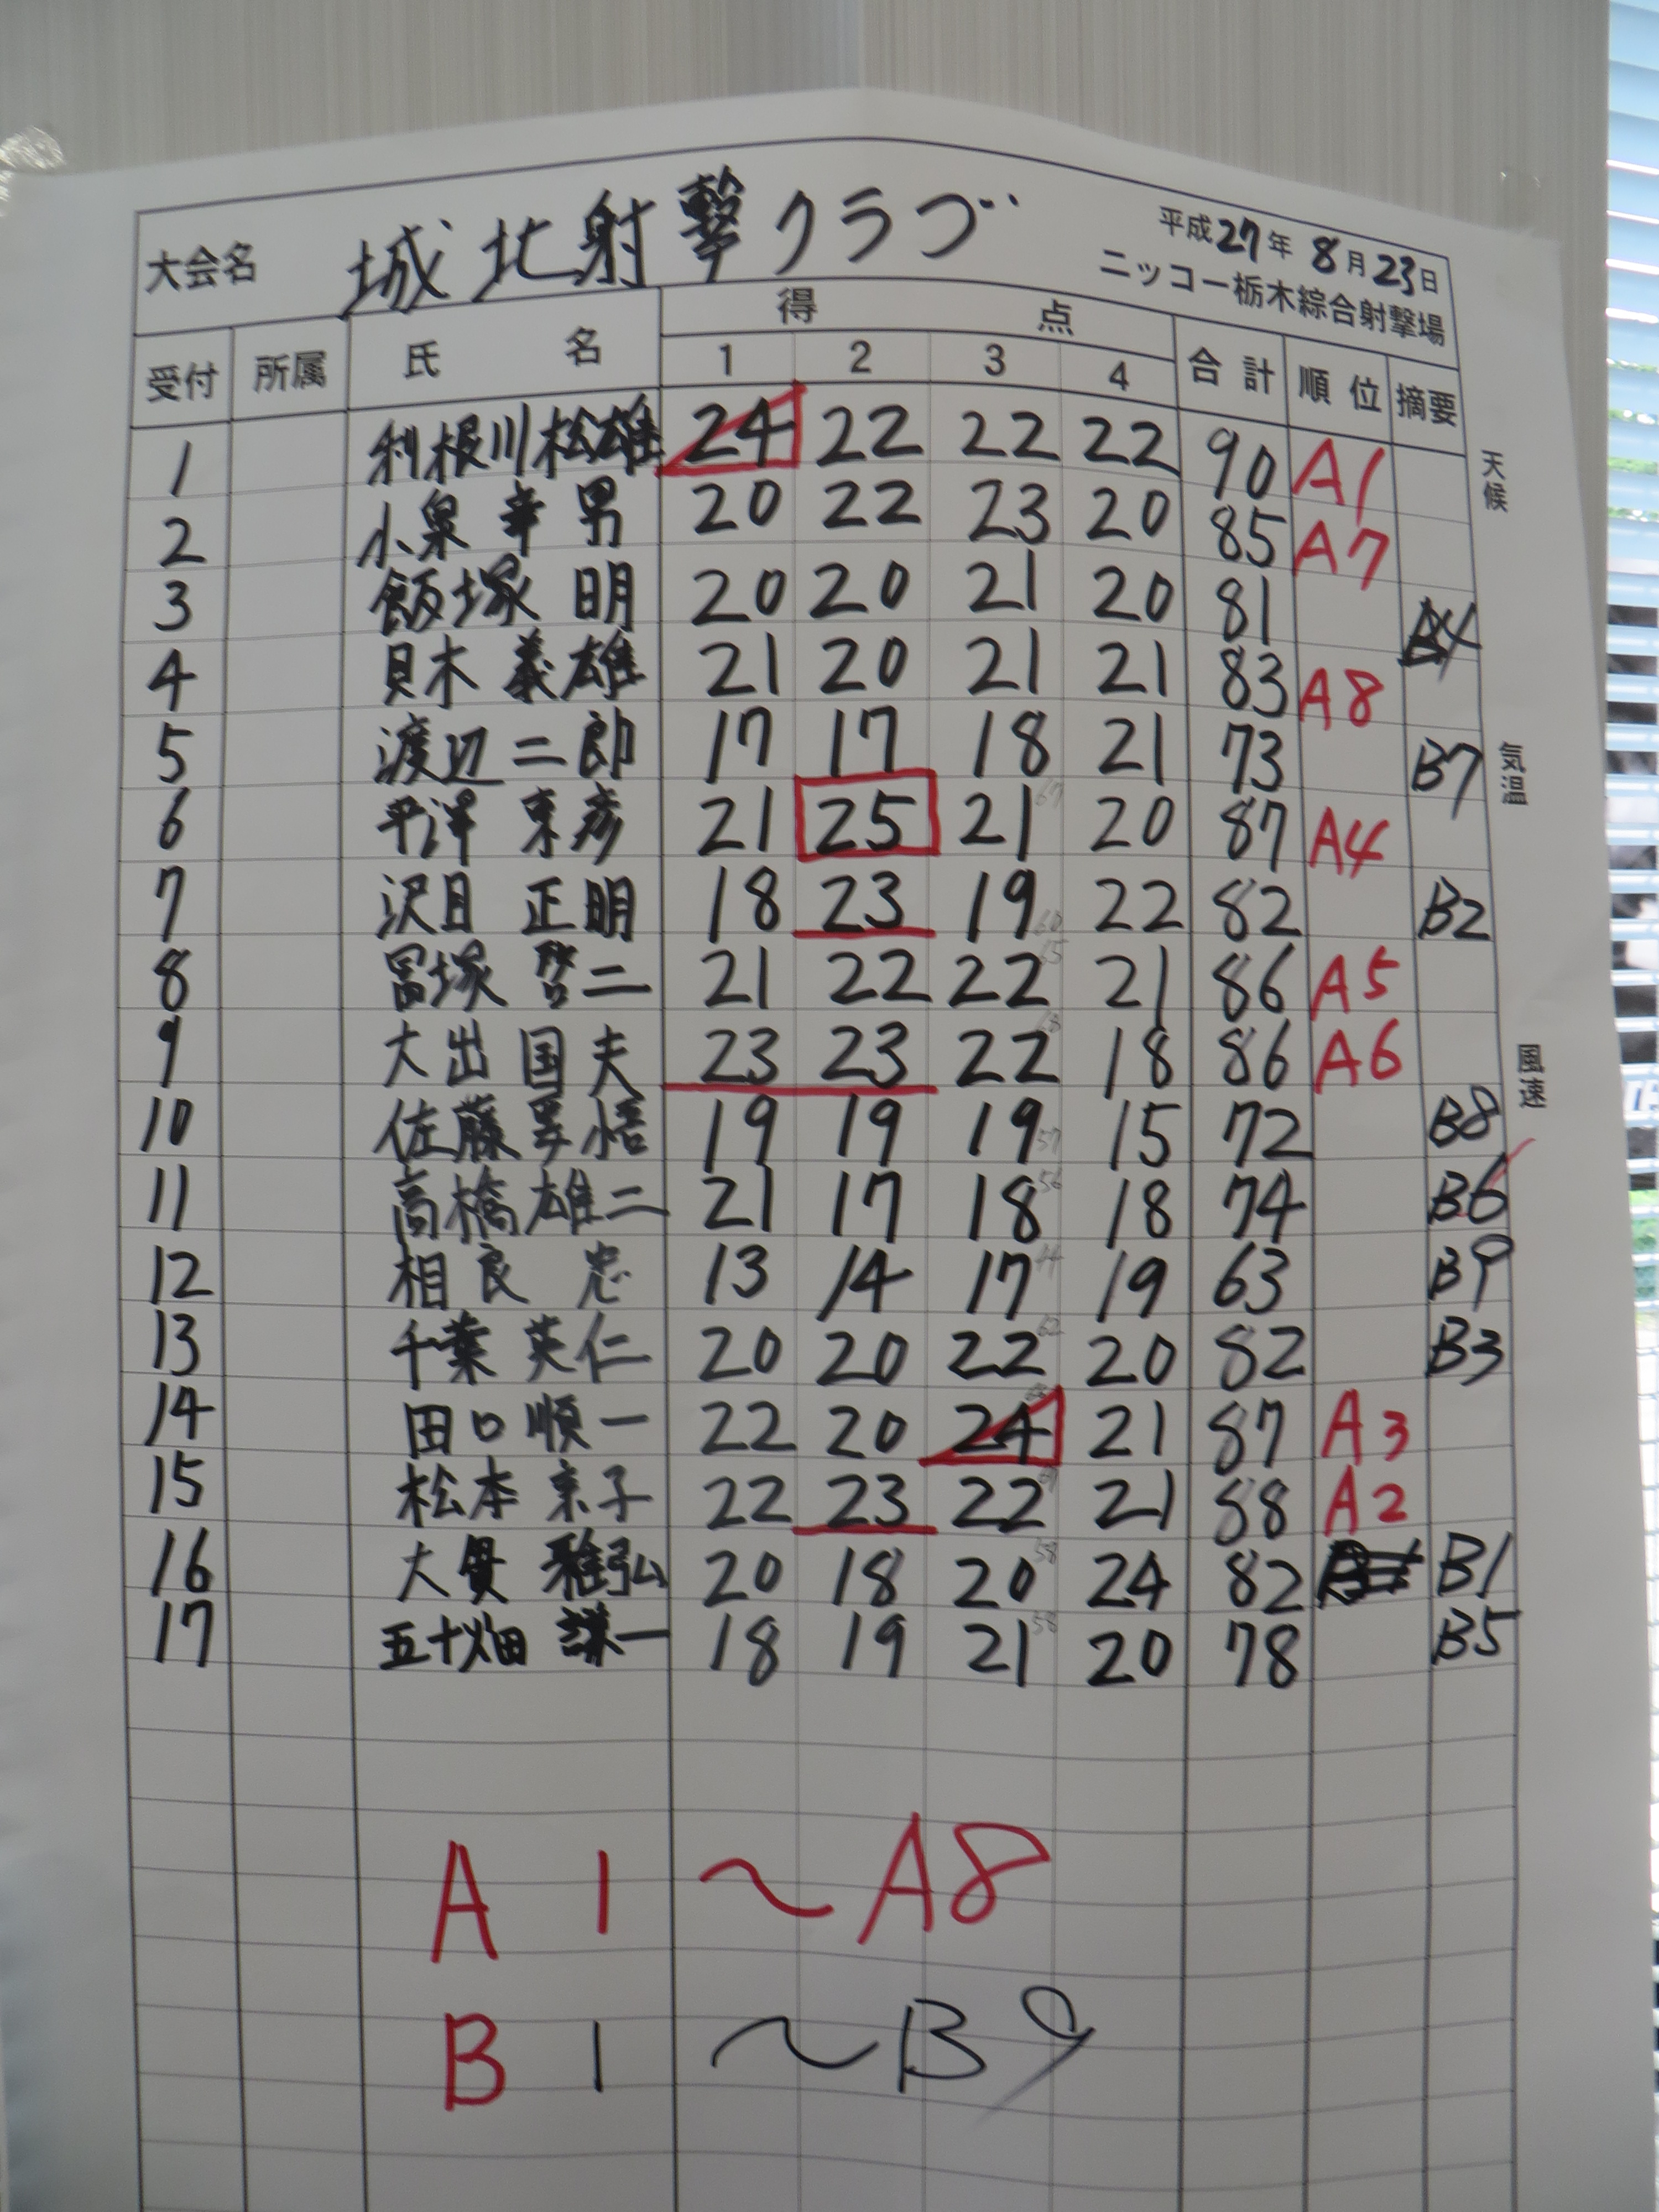 大会名 城北射撃クラブ 平成27年8月23日
ニッコー栃木綜合射撃場
受付 所属 氏名 得点 合計 順位 摘要
1 2 3 4
1 利根川松雄 24 22 22 22 90 A1
2 小泉幸男 20 22 23 20 85 A7
3 飯塚明 20 20 21 20 81 B4
4 貝木義雄 21 20 21 21 83 A8
5 渡辺二郎 17 17 18 21 73 B7
6 平澤東彦 21 25 21 20 87 A4
7 沢目正明 18 23 19 22 82 B2
8 冨塚哲二 21 22 22 21 86 A5
9 大出国夫 23 23 22 18 86 A6
10 佐藤 19 19 19 15 72 B8
11 高橋雄二 21 17 18 18 74 B6
12 相良忠 13 14 17 19 63 B9
13 千葉英仁 20 20 22 20 82 B3
14 田口順一 22 20 24 21 87 A3
15 松本京子 22 23 22 21 88 A2
16 大貫雅弘 20 18 20 24 82 B1
17 五十畑謙一 18 19 21 20 78 B5
天候
気温
風速
A1〜A8
B1〜B9